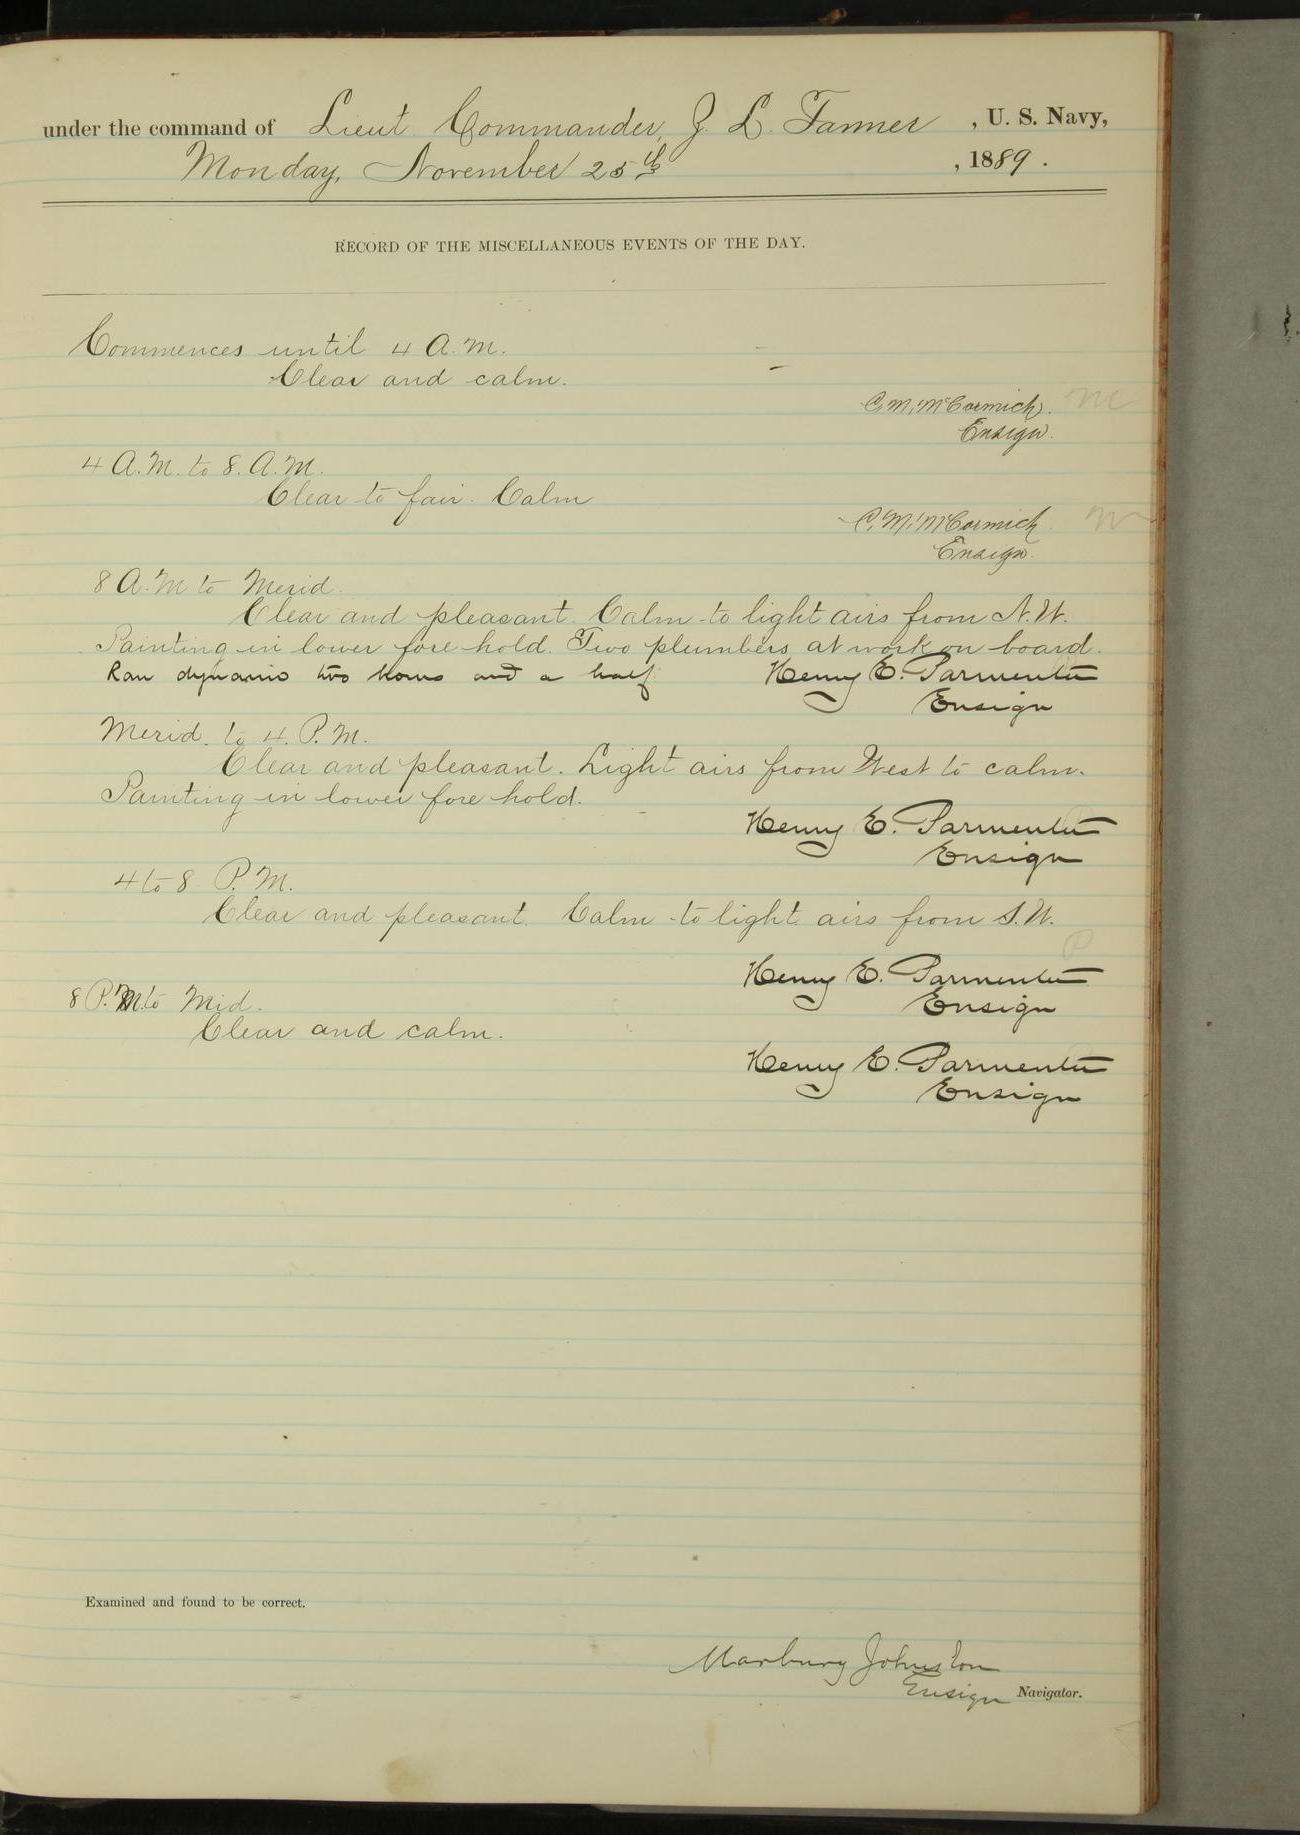 under the command of Lieut. Commander, Z. L. Tanner, U. S. Navy,
Monday, November 25th, 1889.
RECORD OF THE MISCELLANEOUS EVENTS OF THE DAY.
Commences until 4 A.M.
Clear and calm.
C. M. McCormick. M
Ensign.
4 A.M. to 8. A.M.
Clear to fair. Calm
C. M. McCormick M
Ensign.
8 A.M to Merid.
Clear and pleasant. Calm to light airs from N.W.
Painting in lower fore hold. Two plumbers at work on board.
Ran dynamo two hours and a half. Henry E. Parmenter
Ensign
Merid. to 4. P.M.
Clear and pleasant. Light airs from West to calm.
Painting in lower fore hold.
Henry E. Parmenter
Ensign
4 to 8 P.M.
Clear and pleasant. Calm to light airs from S.W.
P
Henry E. Parmenter
Ensign
8 P.M. to Mid.
Clear and calm.
Henry E. Parmenter
Ensign
Examined and found to be correct.
Marbury Johnston
Ensign Navigator.